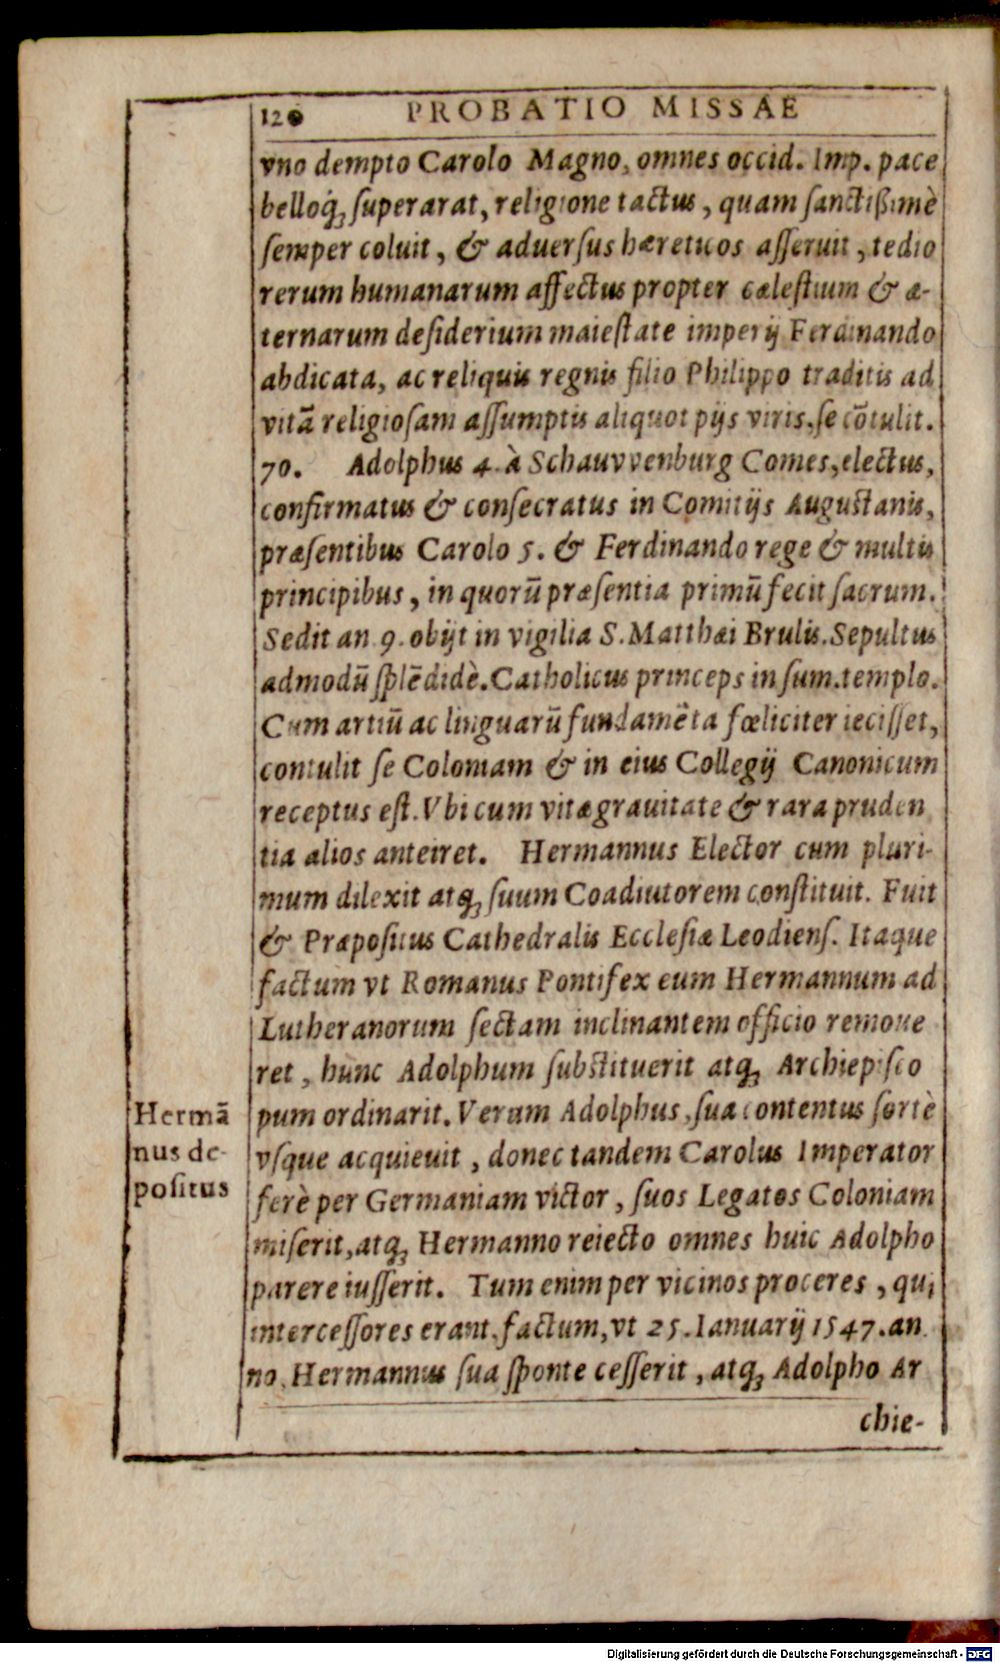 120 PROBATIO MISSAE
vno dempto Carolo Magno, omnes occid. Imp. pace
belloq́ꝫ ſuperarat, religione tactus, quam ſanctiſſimè
ſemper coluit, & aduerſus hæreticos aſſeruit, tedio
rerum humanarum affectus propter cæleſtium & æ-
ternarum deſiderium maieſtate imperij Ferdinando
abdicata, ac reliquis regnis filio Philippo traditis ad
vitā religioſam aſſumptis aliquot pijs viris, ſe cōtulit.
70. Adolphus 4. à Schauvvenburg Comes, electus,
confirmatus & conſecratus in Comitijs Auguſtanis,
præſentibus Carolo 5. & Ferdinando rege & multis
principibus, in quorū præſentia primū fecit ſacrum.
Sedit an 9. obijt in vigilia S. Matthæi Brulis. Sepultus
admodū ſplēdidè. Catholicus princeps in ſum. templo.
Cum artiū ac linguarū fundamēta fœliciter ieciſſet,
contulit ſe Coloniam & in eius Collegij Canonicum
receptus eſt. Vbi cum vitæ grauitate & rara pruden
tia alios anteiret. Hermannus Elector cum pluri-
mum dilexit atqꝫ ſuum Coadiutorem conſtituit. Fuit
& Præpoſitus Cathedralis Eccleſiæ Leodienſ. Itaque
factum vt Romanus Pontifex eum Hermannum ad
Lutheranorum ſectam inclinantem officio remoue
ret, hunc Adolphum ſubſtituerit atqꝫ Archiepiſco
pum ordinarit. Verum Adolphus, ſua contentus ſortè
vſque acquieuit, donec tandem Carolus Imperator
ferè per Germaniam victor, ſuos Legatos Coloniam
miſerit, atqꝫ Hermanno reiecto omnes huic Adolpho
parere iuſſerit. Tum enim per vicinos proceres, qui
interceſſores erant, factum, vt 25. Ianuarij 1547. an
no, Hermannus ſua ſponte ceſſerit, atqꝫ Adolpho Ar
chie-
Hermā
nus de-
poſitus
Digitalisierung gefördert durch die Deutsche Forschungsgemeinschaft - DFG